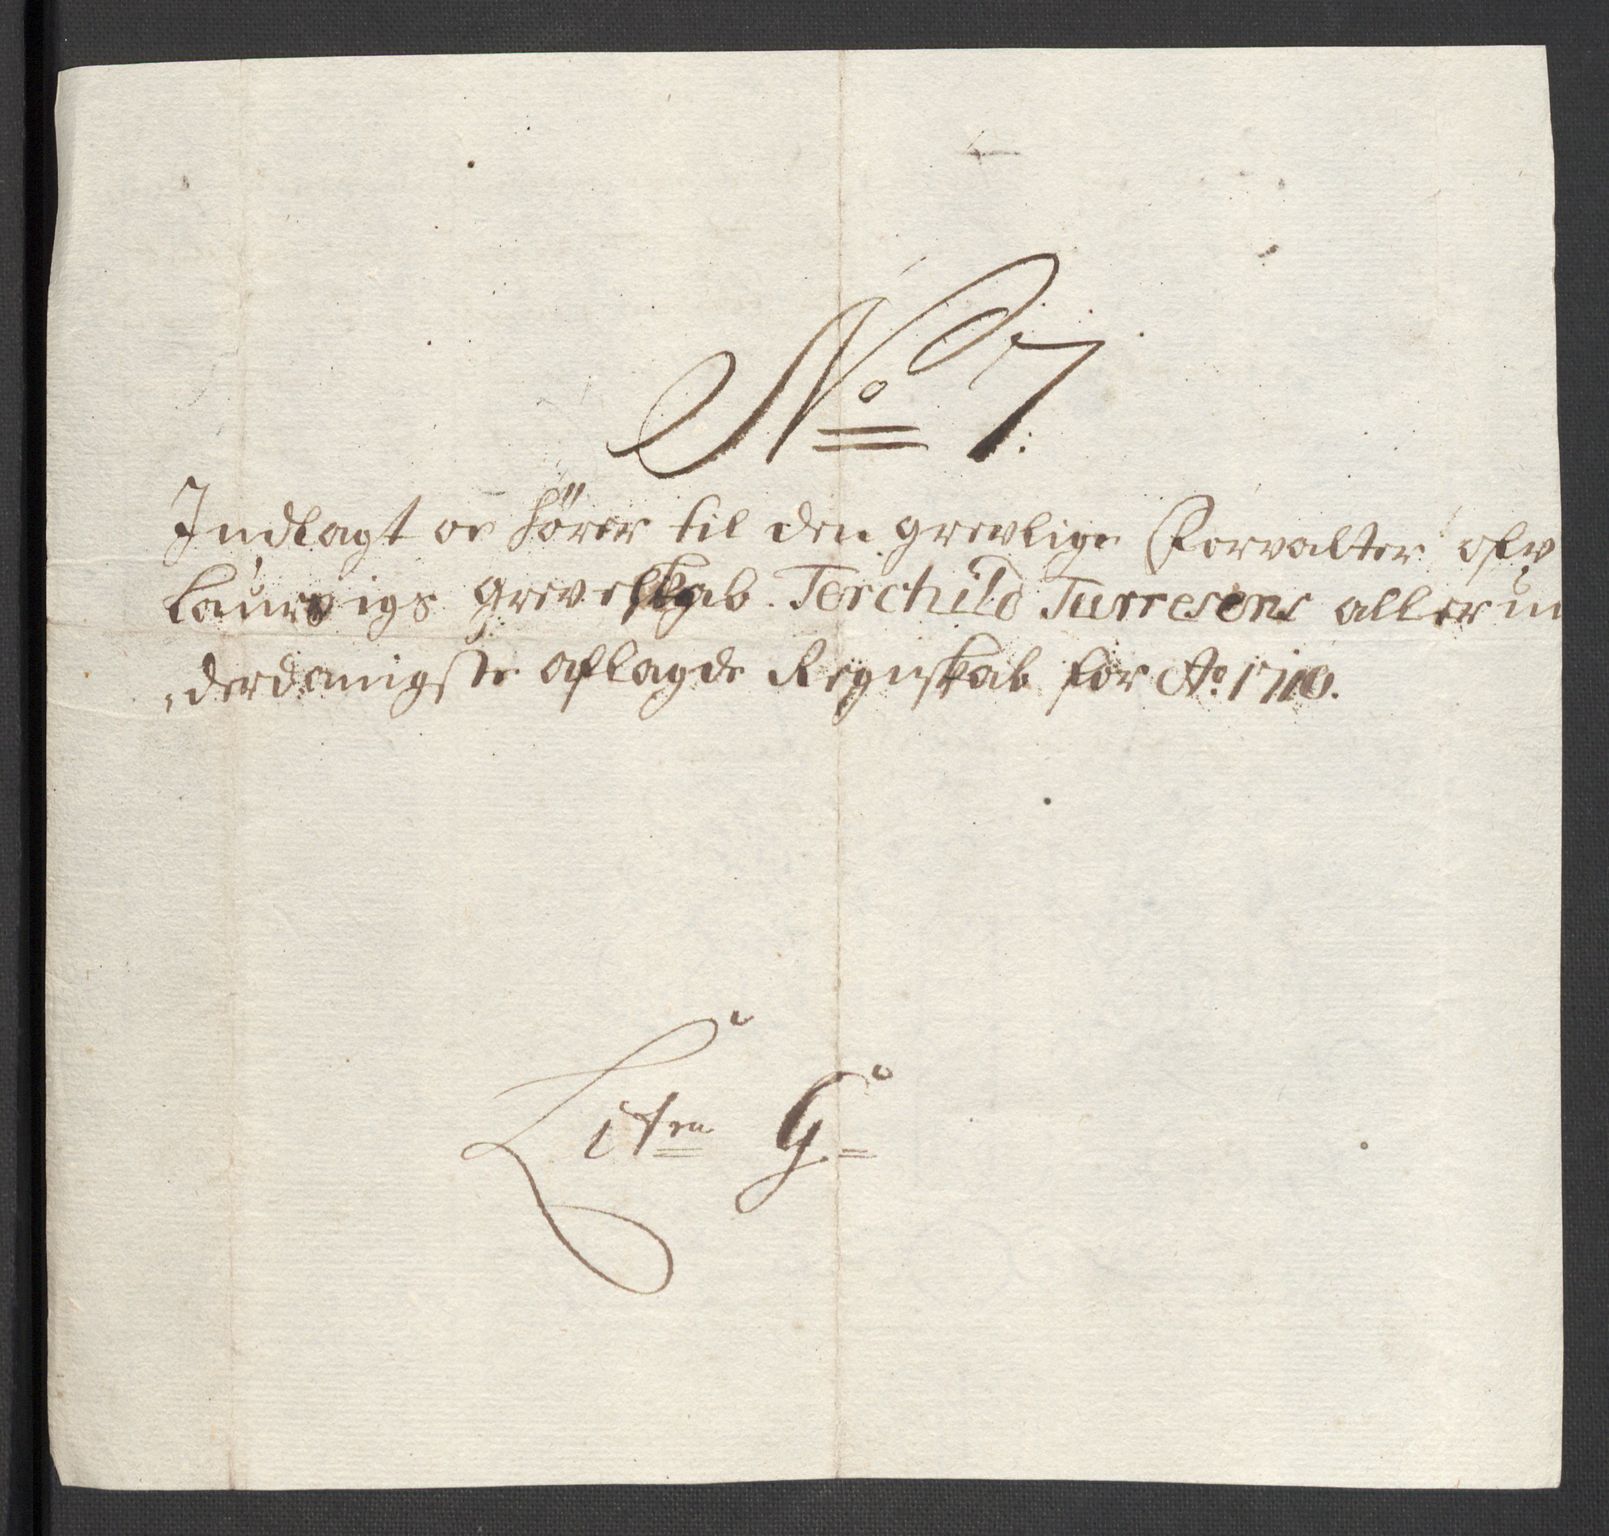 No 7:
Indlagt oc hörer til den grevlige Forvalter ofv
Laurvigs Grevelskab Terchild Turresens allerun
derdanigste aflagde Regnskab for Ao: 1710.
Litra G: